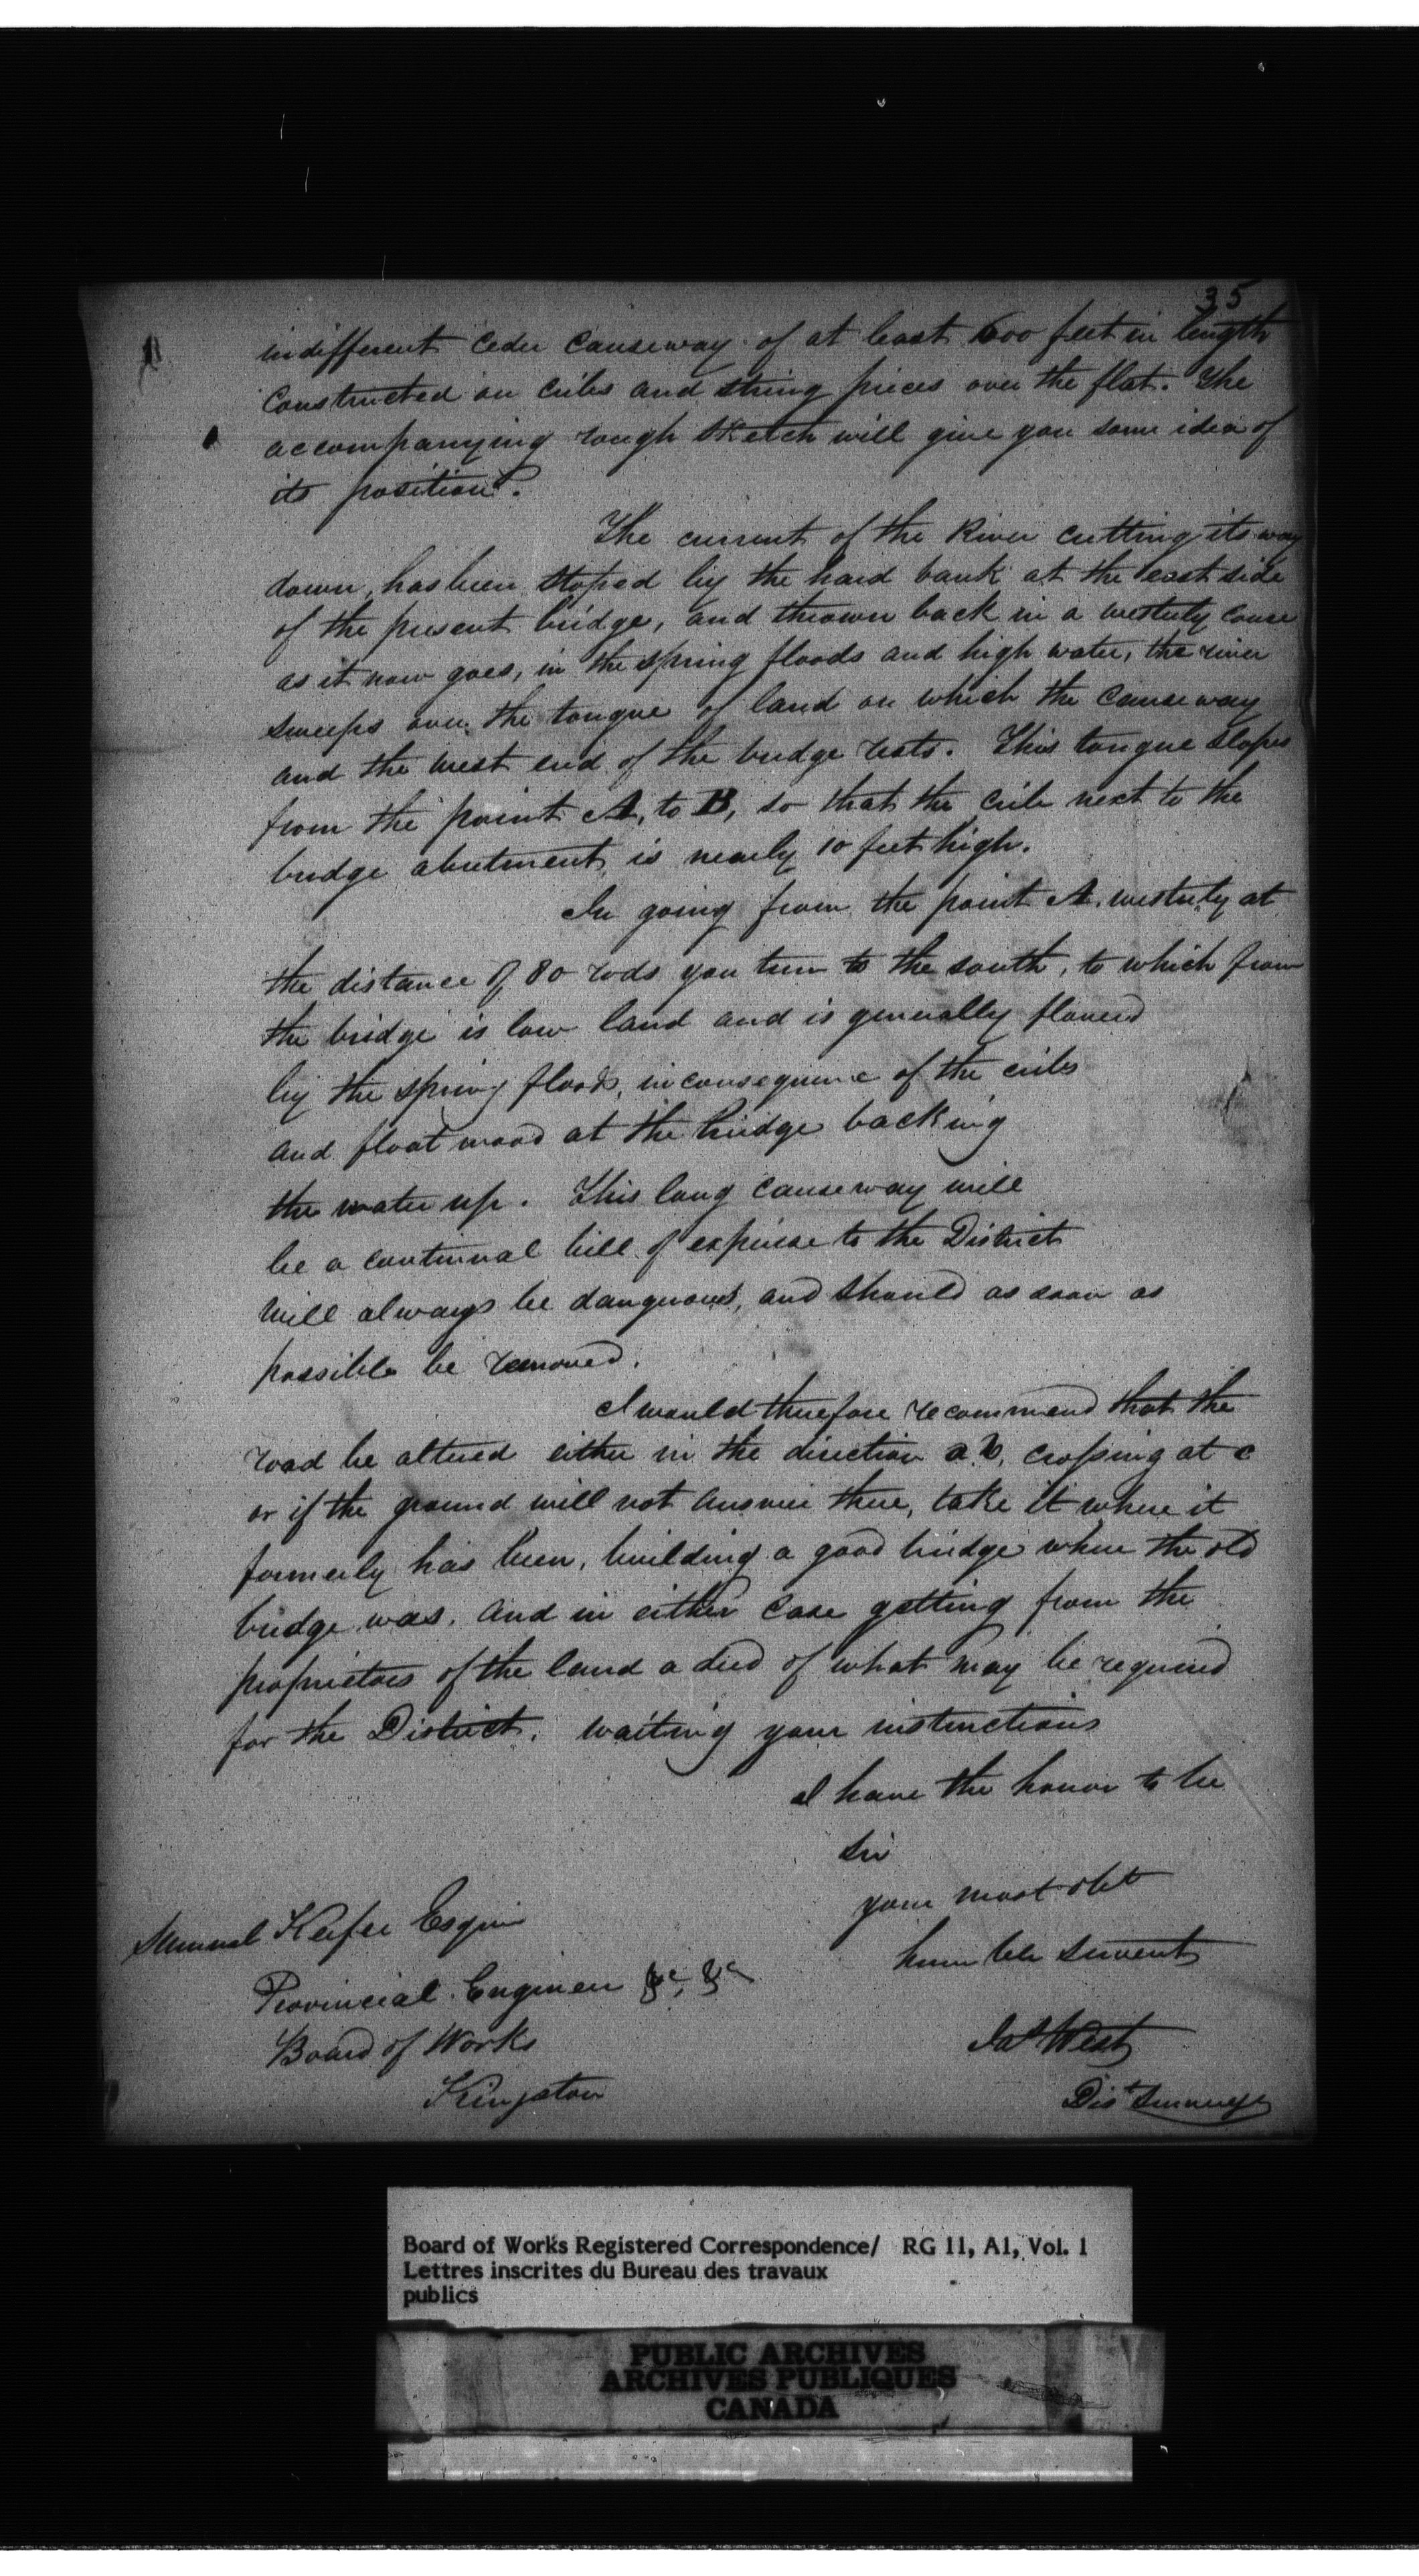 35
indifferent Ceder Causeway of at least 600 feet in length
Constructed on Cribs and string pieces over the flat. The
accompanying rough sketch will give you some idea of
its position.
The current of the River cutting its way
down, has been stoped by the hard bank at the east side
of the present bridge, and thrown back in a westerly course
as it now goes, in the spring floods and high water, the river
sweeps over the tongue of land on which the Causeway
and the west end of the bridge rests. This tongue slopes
from the point A, to B, so that the crib next to the
bridge abutment, is nearly 10 feet high.
In going from the point A. westerly at
the distance of 80 rods you turn to the south, to which from
the bridge is low land and is generally flowed
by the spring floods, in consequence of the cribs
and float wood at the bridge backing
the water up. This long Causeway will
be a continual bill of expense to the District
will always be dangerous, and should as soon as
possible be removed.
I would therefore recommend that the
road be altered either in the direction a.b, crossing at c
or if the ground will not answer there, take it where it
formerly has been, building a good bridge where the old
bridge was. And in either Case getting from the
proprietors of the land a deed of what may be required
for the District. waiting your instructions
I have the honor to be
Sir
your most obt
humble servent
Samuel Keefer Esquire
Provincial Engineer &c, &c
Board of Works
Kingston
Jas West
Dist Surveyr
Board of Works Registered Correspondence/ RG 11, A1, Vol. 1
Lettres inscrites du Bureau des travaux
publics
PUBLIC ARCHIVES
ARCHIVES PUBLIQUES
CANADA